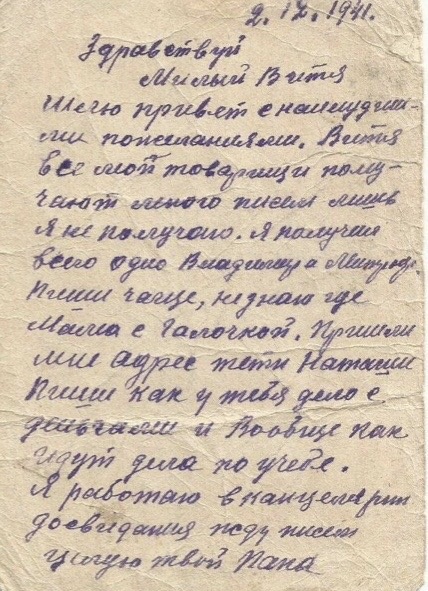 2.12.1941.
Здравствуй
Милый Витя
Шлю привет с наилудши-
ми пожеланиями. Витя
все мой товарищи полу-
чают много писем лишь
я не получаю. Я получил
всего одно Владимира
Пиши чаще, незнаю где
Мама с Галочкой. Пришли
мне адрес тети Наташи
Пиши как у тебя дело с
деньгами и Вообще как
идут дела по учебе.
Я работаю в канцелярии
досвидания жду писем
целую твой Папа